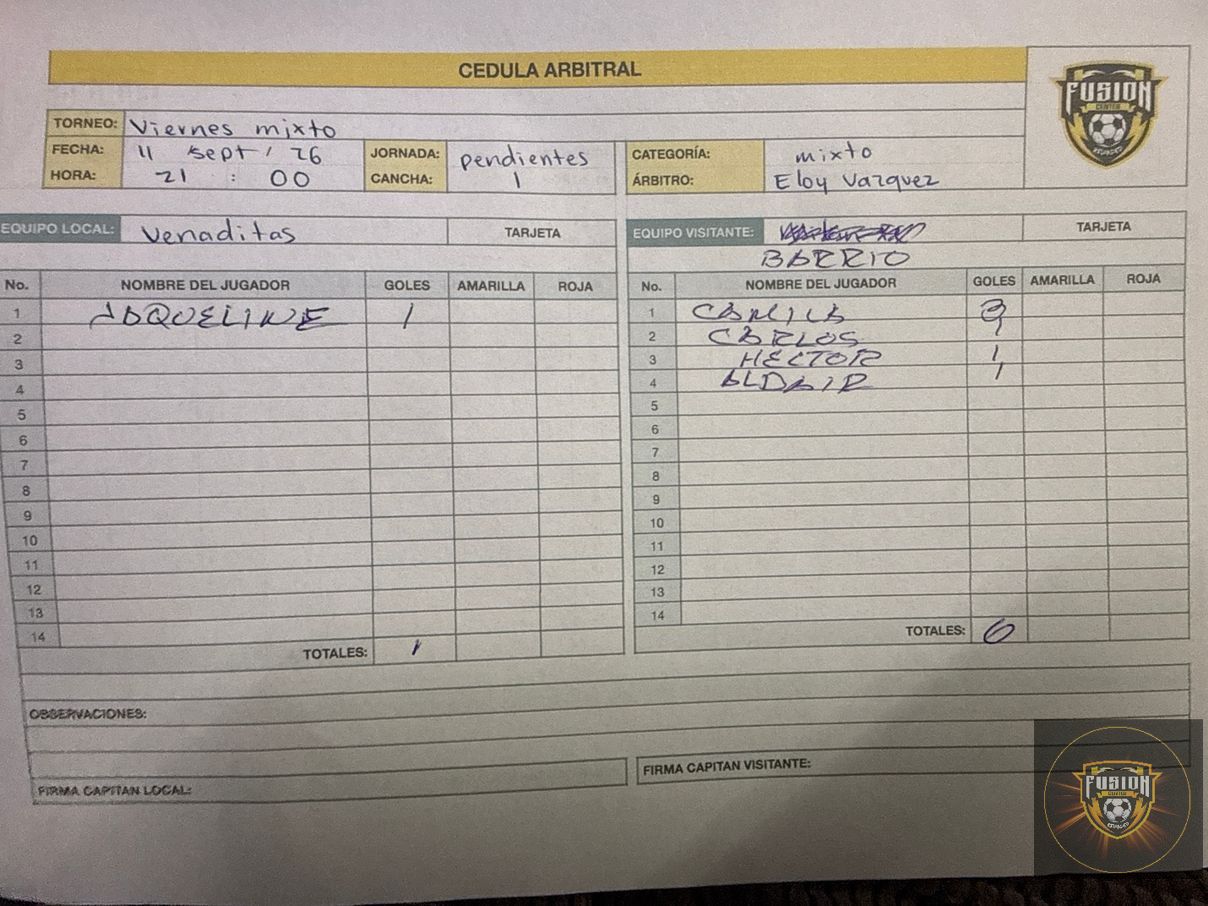 CEDULA ARBITRAL
FUSION
CENTER
RELOADED
TORNEO: Viernes mixto
FECHA: 11 sept / 26
HORA: 21 : 00
JORNADA: pendientes
CANCHA: 1
CATEGORÍA: mixto
ÁRBITRO: Eloy Vazquez
EQUIPO LOCAL: Venaditas TARJETA
No. NOMBRE DEL JUGADOR GOLES AMARILLA ROJA
1 JAQUELINE 1
2
3
4
5
6
7
8
9
10
11
12
13
14
TOTALES: 1
EQUIPO VISITANTE: TARJETA
BARRIO
No. NOMBRE DEL JUGADOR GOLES AMARILLA ROJA
1 CAMILA 3
2 CARLOS 1
3 HECTOR 1
4 ALDAIR 1
5
6
7
8
9
10
11
12
13
14
TOTALES: 6
OBSERVACIONES:
FIRMA CAPITAN LOCAL:
FIRMA CAPITAN VISITANTE:
FUSION
CENTER
RELOADED